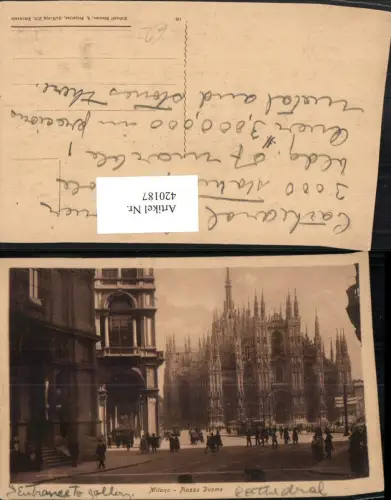 Cathedral over
3000 statu ole
bldg. of marble!
Over $3,000,000 in precious
metal and stones there.
62
Artikel Nr.
420187
Milano - Piazza Duomo
Entrance to gallery.
Cathedral